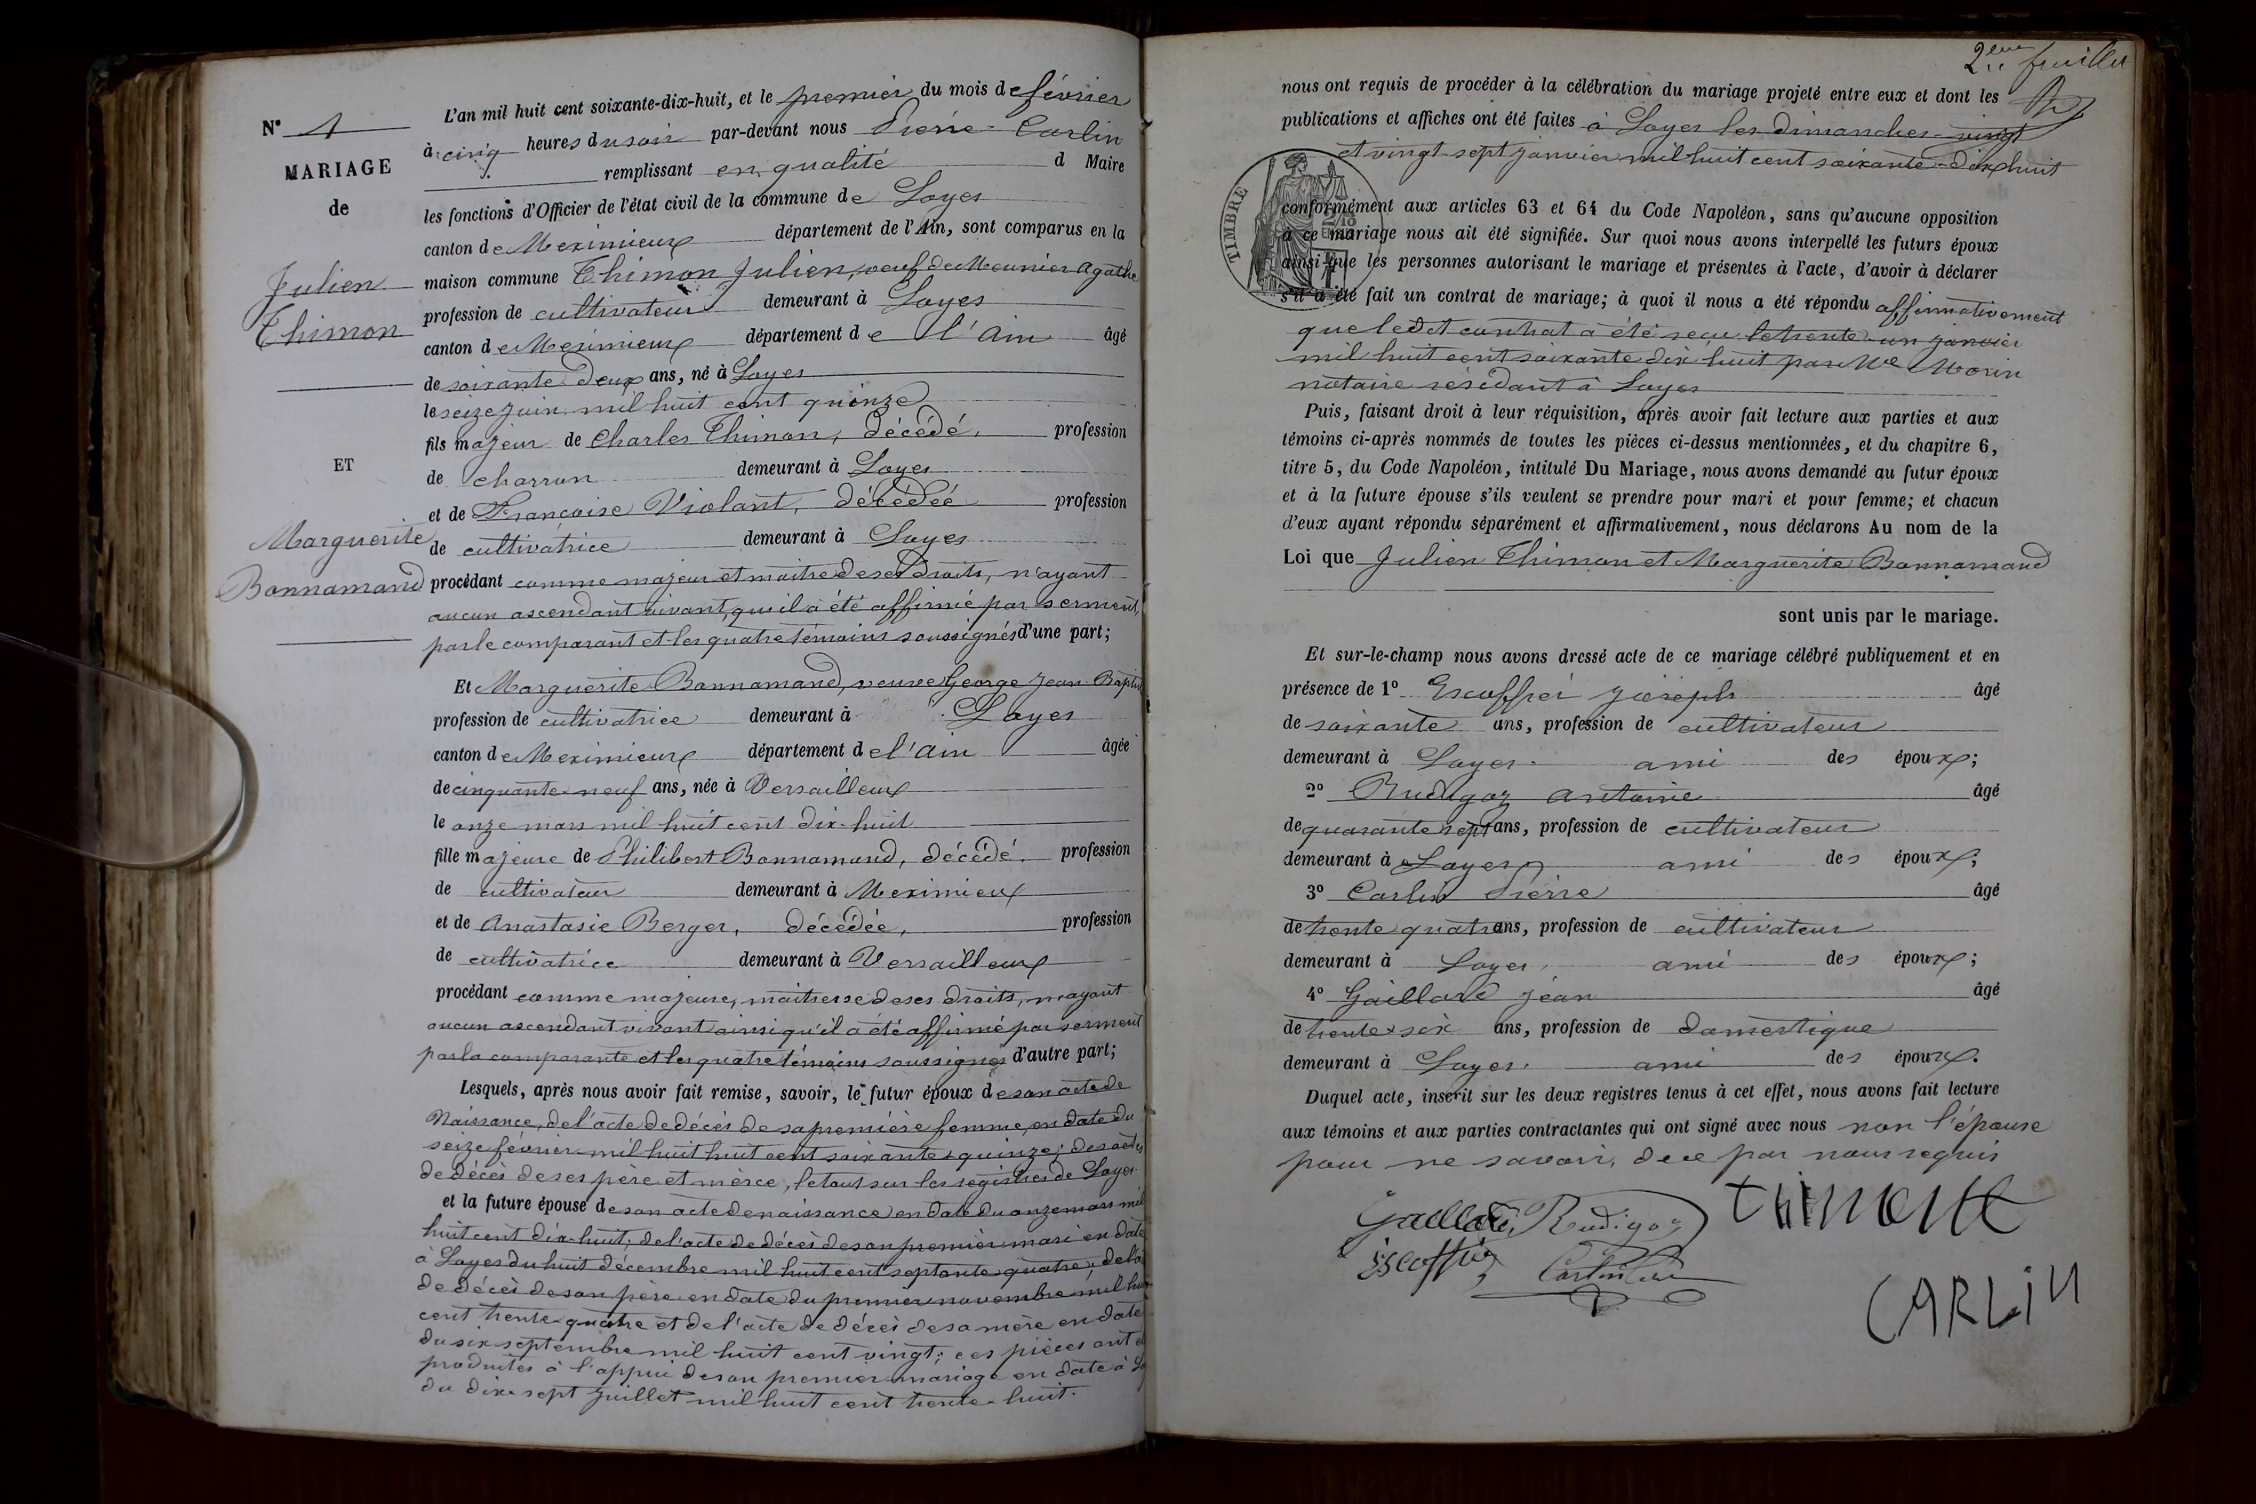 L'an mil huit cent soixante-dix-huit, et le premier du mois de février
N° 1
à cinq heures du soir par-devant nous Pierre Carlin
MARIAGE
remplissant en qualité d Maire
de
les fonctions d'Officier de l'état civil de la commune de Loyes
canton de Meximieux département de l'Ain, sont comparus en la
Julien
maison commune Thimon Julien, veuf de Meunier Agathe
profession de cultivateur demeurant à Loyes
Thimon
canton de Meximieux département de l'Ain âgé
de soixante deux ans, né à Loyes
le seize juin mil huit cent quinze
fils majeur de Charles Thimon, décédé, profession
ET
de charron demeurant à Loyes
et de Françoise Violant, décédée profession
Marguerite
de cultivatrice demeurant à Loyes
Bonnamand
procédant comme majeur et maître de ses droits, n'ayant
aucun ascendant vivant, qu'il a été affirmé par serment,
par le comparant et les quatre témoins soussignés d'une part;
Et Marguerite Bonnamand, veuve George Jean Baptist
profession de cultivatrice demeurant à Loyes
canton de Meximieux département de l'Ain âgée
de cinquante-neuf ans, née à Versailleux
le onze mars mil huit cent dix-huit
fille majeure de Philibert Bonnamand, décédé, profession
de cultivateur demeurant à Meximieux
et de Anastasie Berger, décédée, profession
de cultivatrice demeurant à Versailleux
procédant comme majeure, maitresse de ses droits, n'ayant
aucun ascendant vivant ainsi qu'il a été affirmé par serment
par la comparante et les quatre témoins soussignés d'autre part;
Lesquels, après nous avoir fait remise, savoir, le futur époux de son acte de
Naissance, de l'acte de décès de sa première femme, en date du
seize février mil huit huit cent soixante quinze; des actes
de décès de ses père et mère, le tout sur les registres de Loyes
et la future épouse de son acte de naissance en date du onze mars mil
huit cent dix-huit; de l'acte de décès de son premier mari en date
à Loyes du huit décembre mil huit cent septante quatre, de l'a
de décès de son père en date du premier novembre mil hui
cent trente-quatre et de l'acte de décès de sa mère en date
du six septembre mil huit cent vingt; ces pièces ont é
produites à l'appui de son premier mariage en date à Lo
du dix-sept juillet mil huit cent trente-huit.
2eme feuillet
nous ont requis de procéder à la célébration du mariage projeté entre eux et dont les
publications et affiches ont été faites à Loyes les dimanches vingt
et vingt-sept janvier mil huit cent soixante-dix-huit
TIMBRE
conformément aux articles 63 et 64 du Code Napoléon, sans qu'aucune opposition
à ce mariage nous ait été signifiée. Sur quoi nous avons interpellé les futurs époux
ainsi que les personnes autorisant le mariage et présentes à l'acte, d'avoir à déclarer
s'il a été fait un contrat de mariage; à quoi il nous a été répondu affirmativement
que ledit contrat a été reçu le trente-un janvier
mil huit cent soixante dix huit par Me Morin
notaire résidant à Loyes
Puis, faisant droit à leur réquisition, après avoir fait lecture aux parties et aux
témoins ci-après nommés de toutes les pièces ci-dessus mentionnées, et du chapitre 6,
titre 5, du Code Napoléon, intitulé Du Mariage, nous avons demandé au futur époux
et à la future épouse s'ils veulent se prendre pour mari et pour femme; et chacun
d'eux ayant répondu séparément et affirmativement, nous déclarons Au nom de la
Loi que Julien Thimon et Marguerite Bonnamand
sont unis par le mariage.
Et sur-le-champ nous avons dressé acte de ce mariage célébré publiquement et en
présence de 1° Escoffier Joseph âgé
de soixante ans, profession de cultivateur
demeurant à Loyes ami des époux;
2° Rudigoz Antoine âgé
de quarante sept ans, profession de cultivateur
demeurant à Loyes ami des époux;
3° Carlin Pierre âgé
de trente quatre ans, profession de cultivateur
demeurant à Loyes, ami des époux;
4° Gaillard Jean âgé
de trente six ans, profession de domestique
demeurant à Loyes, ami des époux.
Duquel acte, inscrit sur les deux registres tenus à cet effet, nous avons fait lecture
aux témoins et aux parties contractantes qui ont signé avec nous non l'épouse
pour ne savoir, de ce par nous requis
Gaillard Rudigoz thimont
Escoffier Carlin
CARLiN